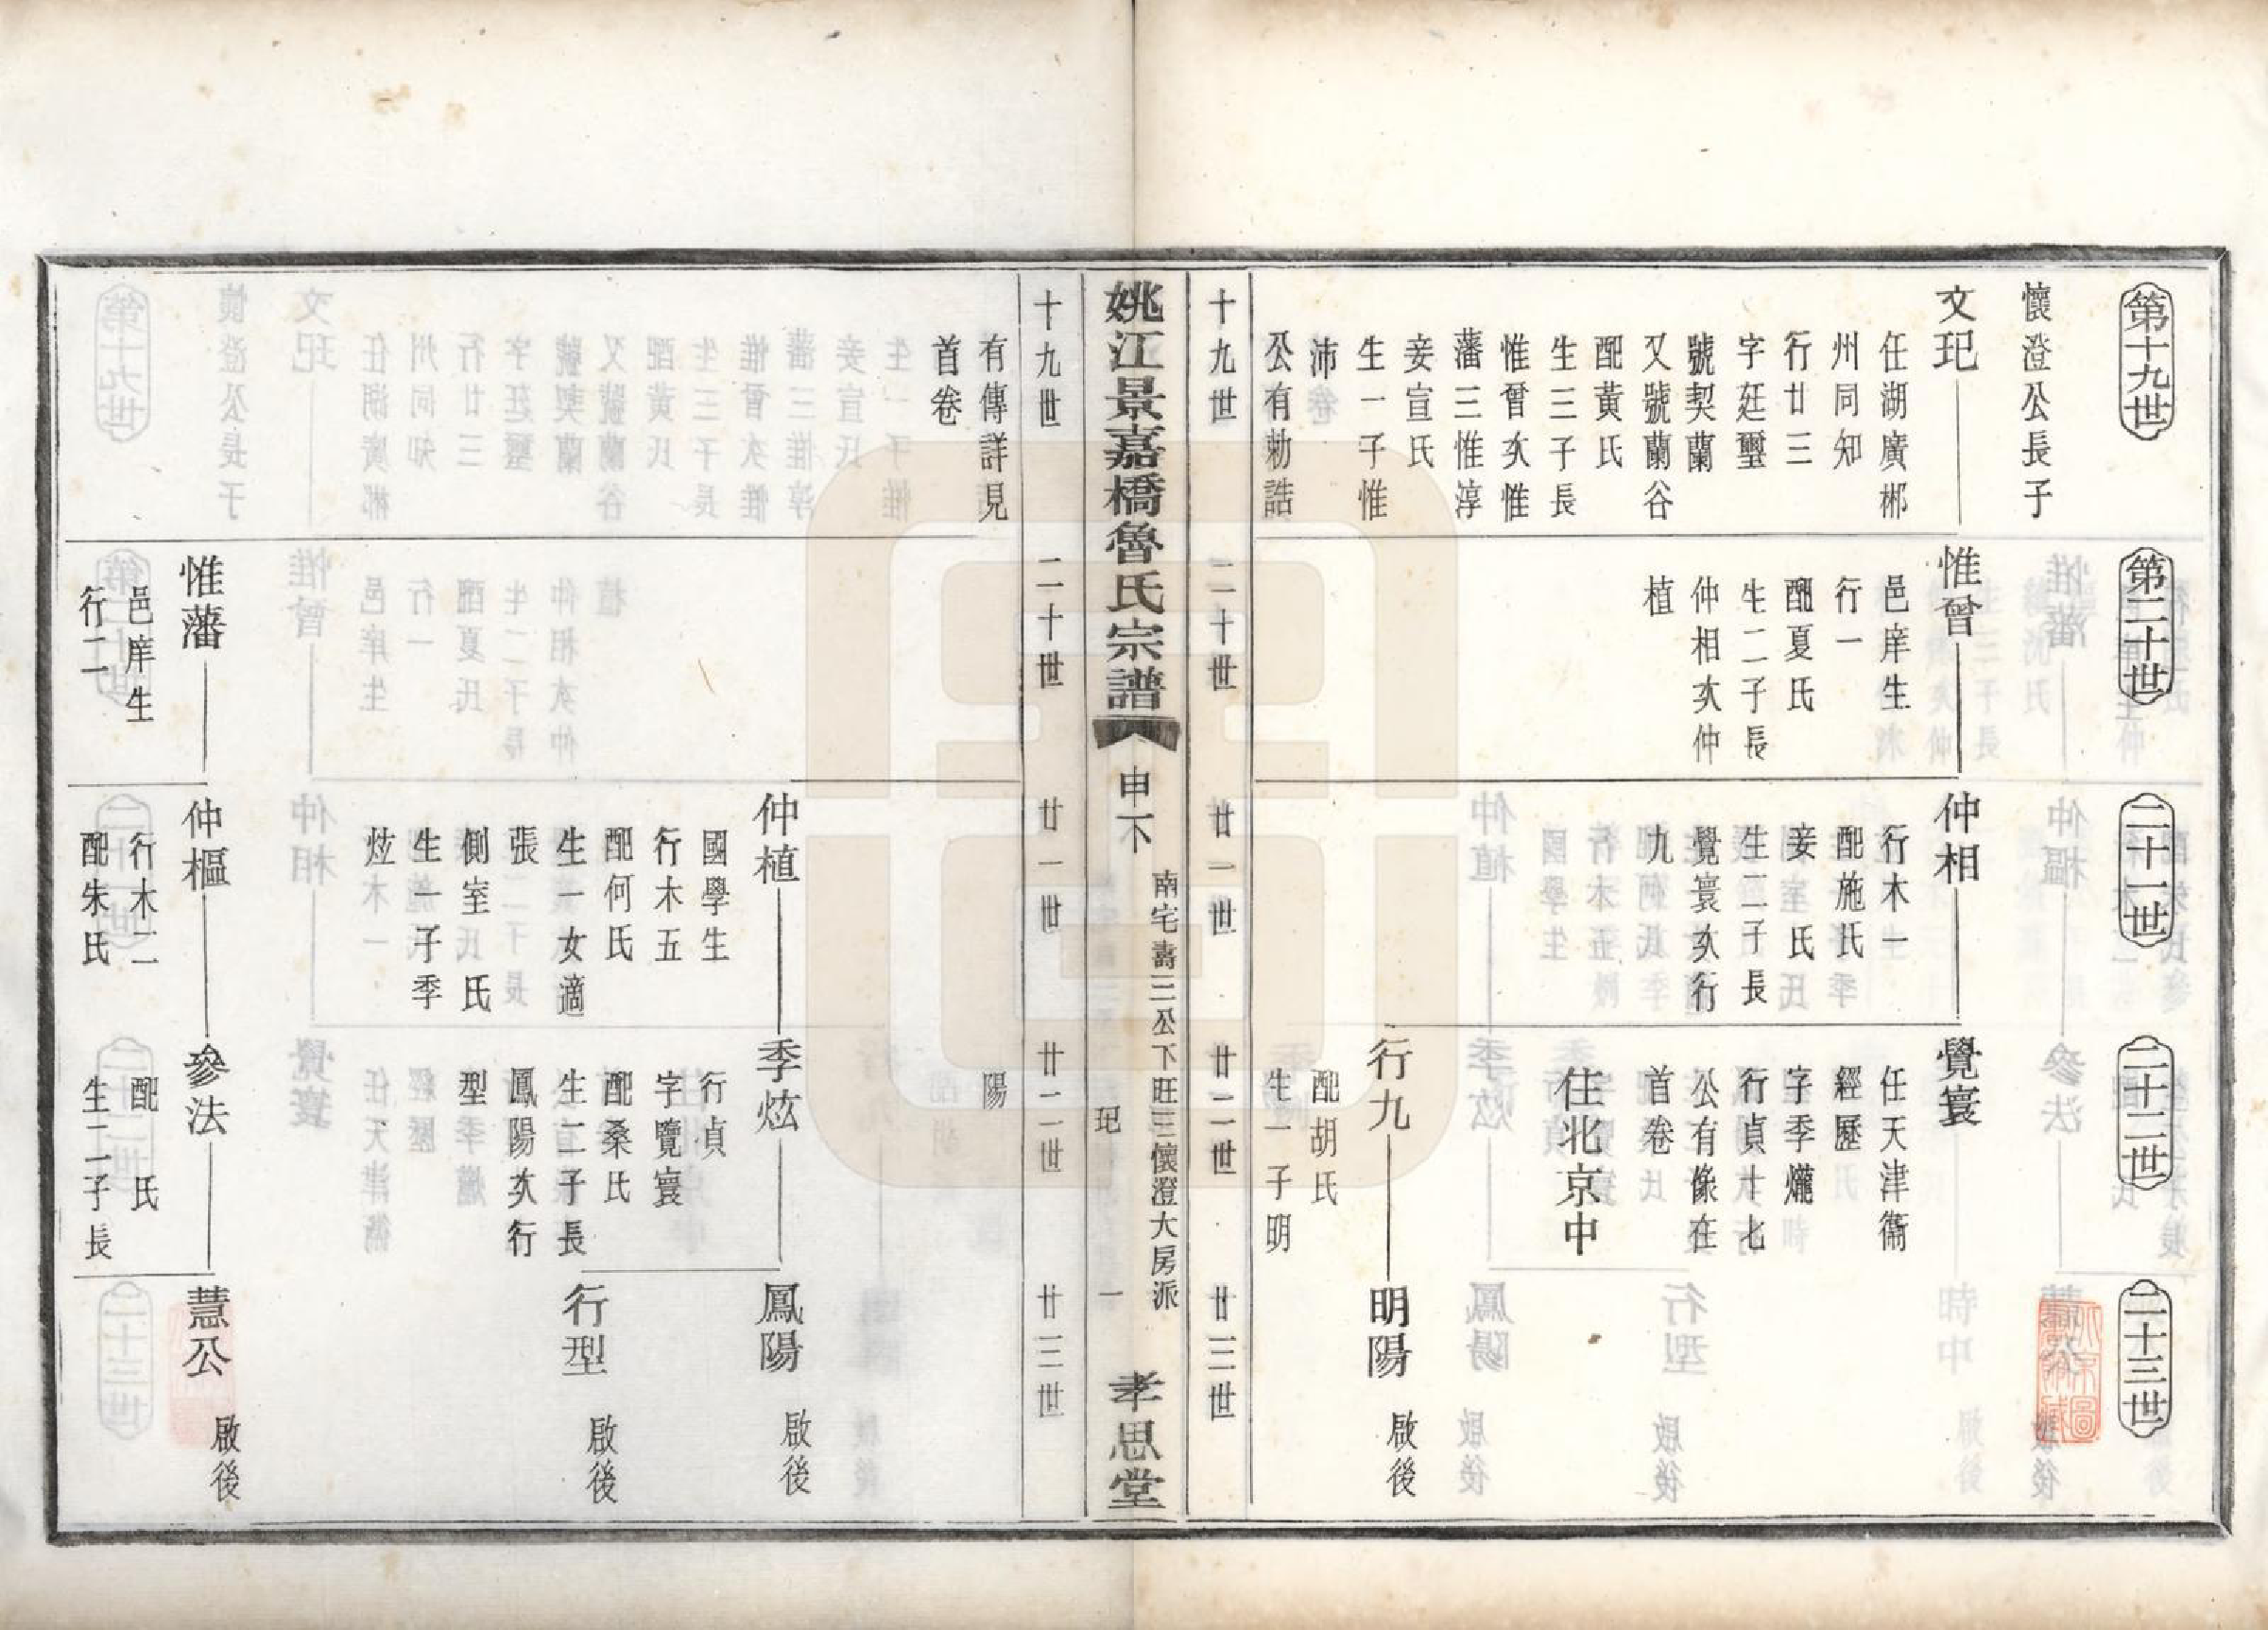 第十九世
懷澄公長子
文玘
任湖廣郴
州同知
行廿三
字廷璽
號契蘭
又號蘭谷
配黃氏
生三子長
惟曾次惟
藩三惟淳
妾宣氏
生一子惟
沛
公有勅誥
第二十世
惟曾
邑庠生
行一
配夏氏
生二子長
仲相次仲
植
二十一世
仲相
行木一
配施氏
妾 氏
生二子長
覺寰次行
九
二十二世
覺寰
任天津衞
經歷
字季爖
行貞十七
公有像在
首卷
住北京中
行九
配胡氏
生一子明
二十三世
明陽
啟後
十九世
二十世
廿一世
廿二世
廿三世
姚江景嘉橋魯氏宗譜
申下
南宅壽三公下旺三懷澄大房派
玘
一
孝思堂
十九世
二十世
廿一世
廿二世
廿三世
有傳詳見
首卷
陽
仲植
國學生
行木五
配何氏
生一女適
張
側室 氏
生一子季
炫
季炫
行貞
字覽寰
配桑氏
生二子長
鳳陽次行
型
鳳陽
啟後
行型
啟後
惟藩
邑庠生
行二
仲樞
行木二
配朱氏
參法
配 氏
生二子長
慧公
啟後